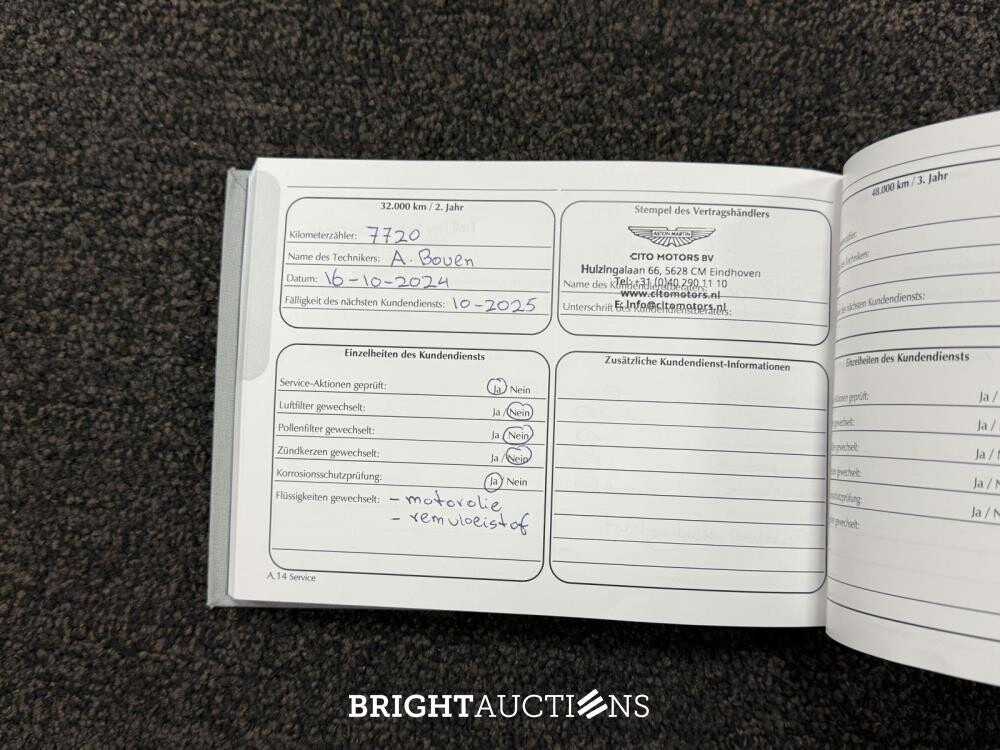 32.000 km / 2. Jahr
Kilometerzähler: 7720
Name des Technikers: A. Boven
Datum: 16-10-2024
Fälligkeit des nächsten Kundendiensts: 10-2025
Stempel des Vertragshändlers
ASTON MARTIN
CITO MOTORS BV
Huizingalaan 66, 5628 CM Eindhoven
Tel: +31 (0)40 290 11 10
Name des Kundendienstberaters:
www.citomotors.nl
E: Info@citomotors.nl
Unterschrift des Kundendienstberaters:
Einzelheiten des Kundendiensts
Service-Aktionen geprüft: Ja / Nein
Luftfilter gewechselt: Ja / Nein
Pollenfilter gewechselt: Ja / Nein
Zündkerzen gewechselt: Ja / Nein
Korrosionsschutzprüfung: Ja / Nein
Flüssigkeiten gewechselt: - motorolie
- remvloeistof
Zusätzliche Kundendienst-Informationen
A.14 Service
48.000 km / 3. Jahr
Technikers:
nächsten Kundendiensts:
Einzelheiten des Kundendiensts
geprüft: Ja /
Ja /
Ja /
Ja /
Ja /
BRIGHTAUCTIONS